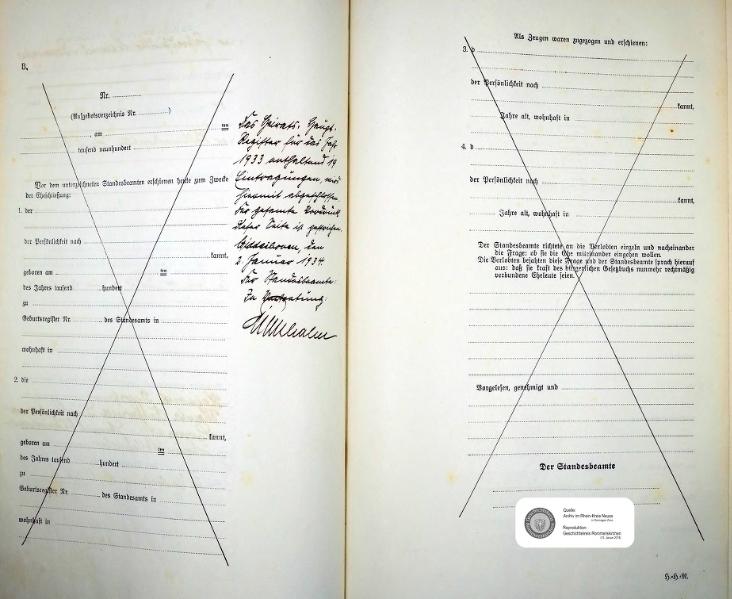 B.
Nr.
(Aufgebotsverzeichnis Nr. )
am ten
tausend neunhundert
Vor dem unterzeichneten Standesbeamten erschienen heute zum Zwecke
der Eheschließung:
1. der
der Persönlichkeit nach
kannt,
geboren am ten
des Jahres tausend hundert
zu
Geburtsregister Nr. des Standesamts in
wohnhaft in
2. die
der Persönlichkeit nach
kannt,
geboren am ten
des Jahres tausend hundert
zu
Geburtsregister Nr. des Standesamts in
wohnhaft in
Das Heirats-Haupt-
Register für das Jahr
1933 enthaltend 19
Eintragungen, wird
hiermit abgeschlossen.
Der gesamte Vordruck
dieser Seite ist gestrichen.
den
2. Januar 1934.
Der Standesbeamte
In Vertretung
Als Zeugen waren zugezogen und erschienen:
3. d
der Persönlichkeit nach
kannt,
Jahre alt, wohnhaft in
4. d
der Persönlichkeit nach
kannt,
Jahre alt, wohnhaft in
Der Standesbeamte richtete an die Verlobten einzeln und nacheinander
die Frage: ob sie die Ehe miteinander eingehen wollen.
Die Verlobten bejahten diese Frage und der Standesbeamte sprach hierauf
aus: daß sie kraft des bürgerlichen Gesetzbuchs nunmehr rechtmäßig
verbundene Eheleute seien.
Vorgelesen, genehmigt und
Der Standesbeamte
Quelle:
Archiv im Rhein-Kreis Neuss
Reproduktion:
Geschichtskreis Rommerskirchen
H.-H.-R.